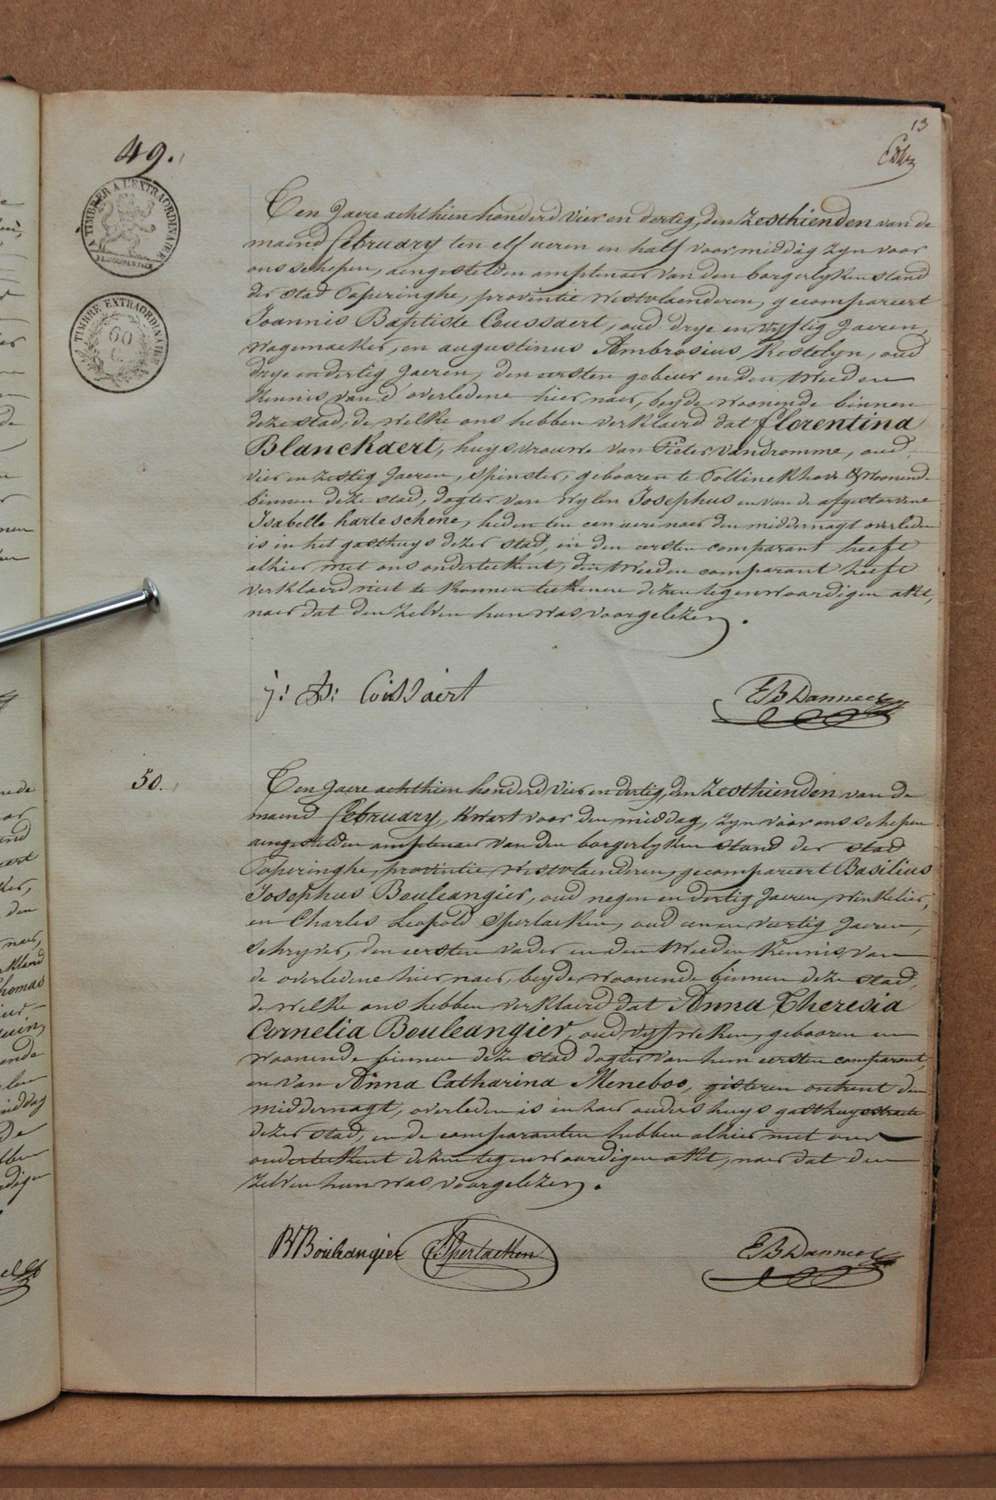 13
49.
A TIMBRER A L'EXTRAORDINAIRE
TIMBRE EXTRAORDINAIRE
60
C.
Ten Jaere achthien honderd vier en dertig, den Zesthienden van de
maend february ten elf ueren en half voor middag zyn voor
ons schepen, aengestelden amptenaer van den borgerlyken stand
der stad Poperinghe, provintie Westvlaenderen, gecompareert
Joannis Baptiste Coussaert, oud drye en vyftig Jaeren,
Wagemaeker, en augustinus Ambrosius Kestelyn, oud
drye en dertig Jaeren, den eersten gebeur en den tweeden
Kennis van d'overledene hier naer, beyde woonende binnen
deze stad, de welke ons hebben verklaerd dat florentina
Blanckaert, huysvrouwe van Pieter vandromme, oud
vier en zestig Jaeren, Spinster, gebooren te Pollinckhove & Woonende
binnen deze stad, dogter van Wylen Josephus en van de afgestorvene
Isabelle harteschene, heden ten een uere naer den middernagt overleden
is in het gasthuys dezer stad, en den eersten comparant heeft
alhier met ons onderteekent, den tweeden comparant heeft
verklaerd niet te konnen teekenen dezen tegenwoordigen akt,
naer dat den zelven hun was voorgelezen.
j: B: Coussaert
50.
Ten Jaere achthien honderd vier en dertig, den Zesthienden van de
maend february, kwart voor den middag, zyn voor ons schepen
aengestelden amptenaer van den borgerlyken stand der stad
Poperinghe, provintie, Westvlaenderen, gecompareert Basilius
Josephus Bouleangier, oud negen en dertig Jaeren, Winkelier,
en Charles Leopold Sperlaeken, oud een en veertig Jaeren,
Schryver, den eersten vader en den tweeden Kennis van
de overledene hier naer, beyde woonende binnen deze stad,
de welke ons hebben verklaerd dat Anna Theresia
Cornelia Bouleangier, oud vyf weken, gebooren en
woonende binnen deze stad dogter van hun eersten comparant,
en van Anna Catharina Meneboo, gisteren ontrent den
middernagt, overleden is in haer ouders huys gasthuysstraete
dezer stad, en de comparanten hebben alhier met ons
onderteekent dezen tegenwoordigen akt, naer dat den
zelven hun was voorgelezen.